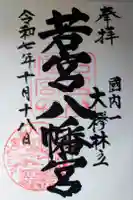 奉拝
國内一
大欅林立
若宮八幡宮
令和七年十月十八日